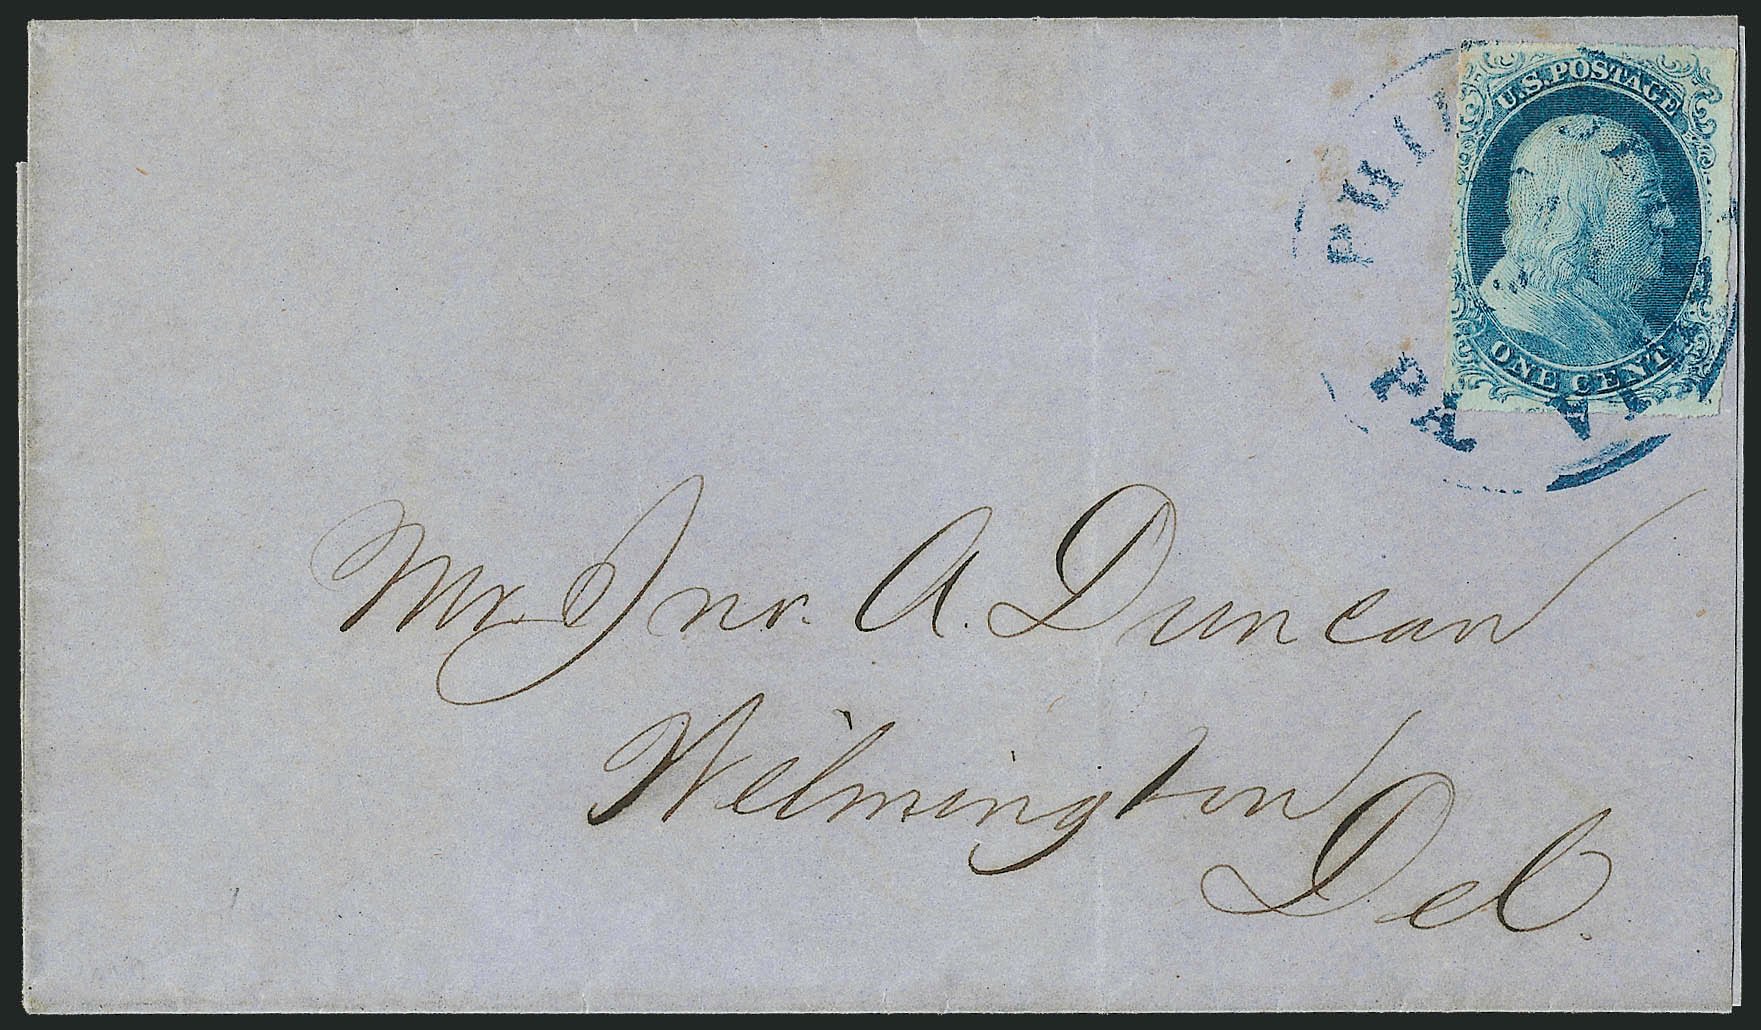 U.S. POSTAGE
ONE CENT
PHIL
PA
Mr. Jno. A. Duncan
Wilmington
Del.